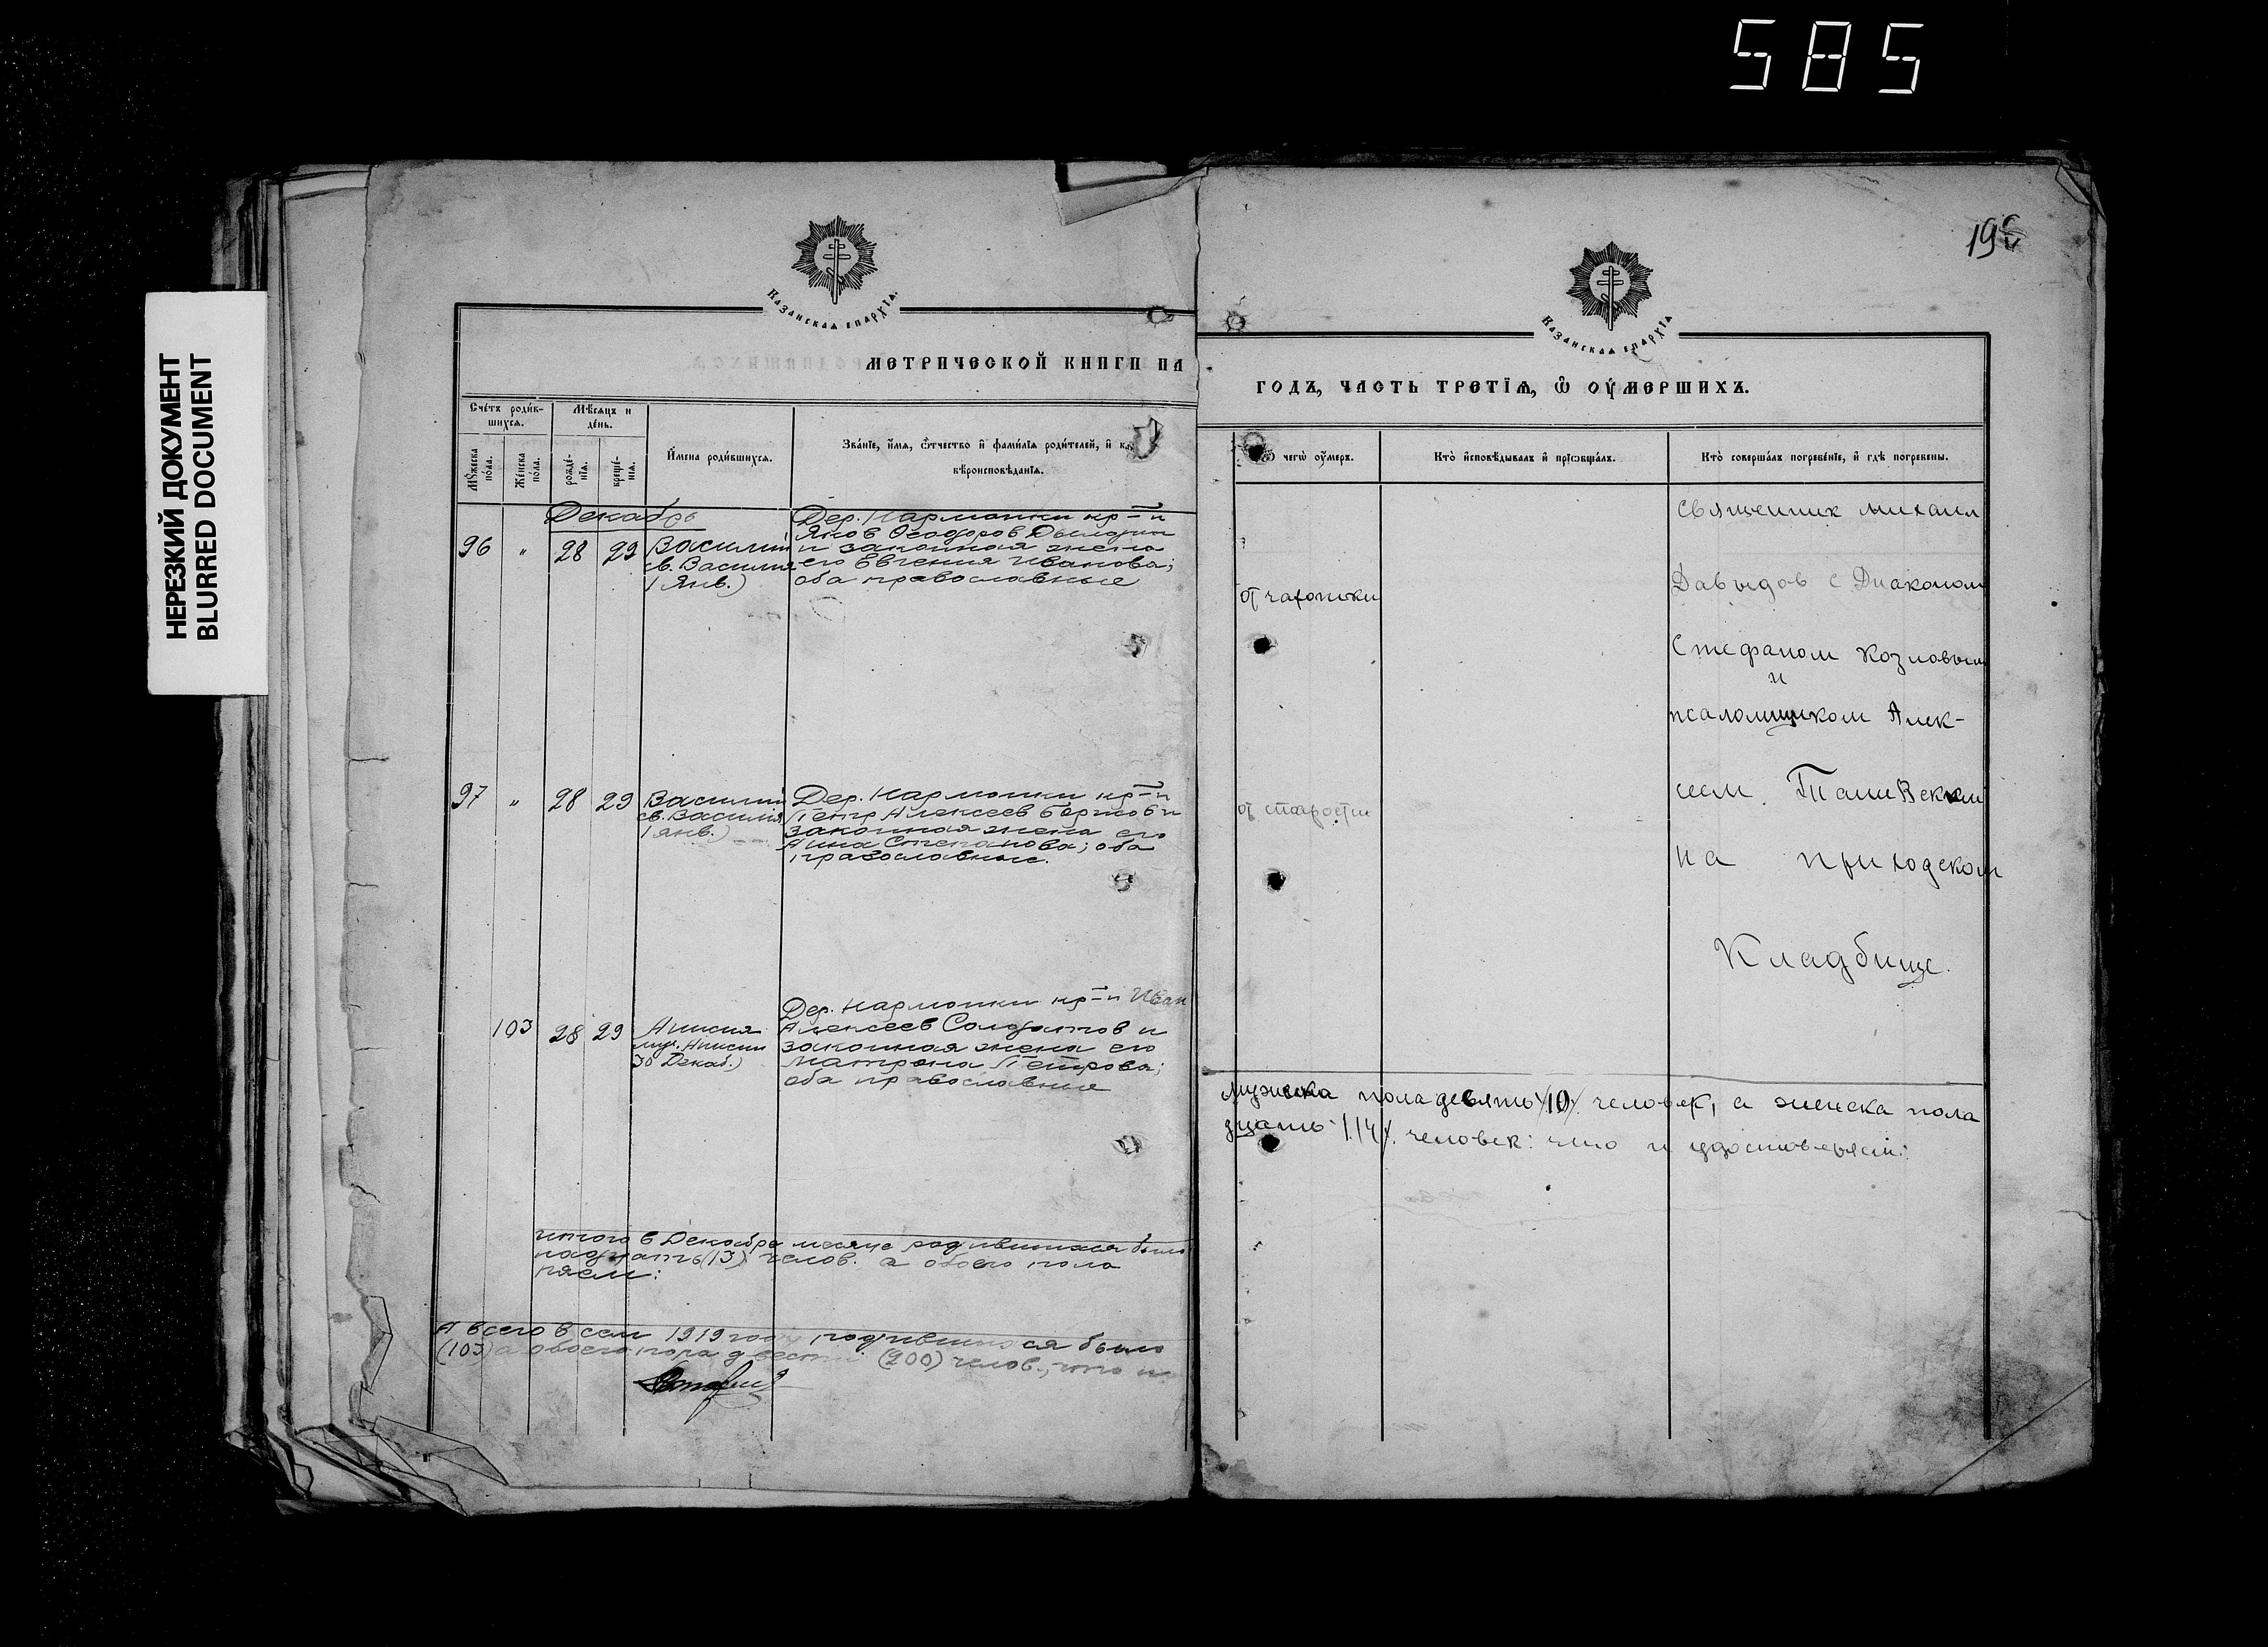 585
НЕРЕЗКИЙ ДОКУМЕНТ
BLURRED DOCUMENT
Казанскаѧ єпархїѧ.
МЕТРИЧЕСКОЙ КНИГИ НА
Сче́тъ роди́в-
шихсѧ.
Мѣ́сѧцъ и
де́нь.
Мꙋ́жеска
по́ла.
Же́нска
по́ла.
рожде́-
нїѧ.
креще́-
нїѧ.
И҆мена̀ роди́вшихсѧ.
Зва́нїе, и҆́мѧ, ѻ҆́тчество и҆ фами́лїѧ роди́телей, и҆
вѣроисповѣ́данїѧ.
Декабрь
96 „ 28 29
Василий
св. Василия
1 Янв.)
Дер. Кармышки кр-н
Яков Феодоров
и законная жена
его Евгения Иванова;
оба православные
97 „ 28 29
Василий
св. Василия
1 янв.)
Дер. Кармышки кр-н
Петр Алексеев и
законная жена его
Анна Степанова; оба
православные.
103 28 29
Анисия
муч. Анисии
30 Декаб.)
Дер. Кармышки кр-н Иван
Алексеев Солдатов и
законная жена его
Матрона Петрова;
оба православные
Итого в Декабре месяце родившихся было
надцать (13) челов. а обоего пола
рясм:
А всего в сем 1919 году родившихся было
(103) а обоего пола двести (200) челов., что и
Казанскаѧ єпархїѧ
ГОДЪ, ЧАСТЬ ТРЕТЇѦ, Ѽ ОУ҆МЕРШИХЪ.
чегѡ̀ оу҆́меръ.
Кто̀ и҆сповѣ́дывалъ и҆ прїѡбща́лъ.
Кто̀ соверша́лъ погребе́нїе, и҆ гдѣ̀ погребены.
от чахотки
от старости
священник Михаил
Давыдов с Диаконом
Стефаном Козловым
и
псаломщиком Алек-
сеем
на приходском
Кладбище.
Мужеска пола девять /10/ человек, а женска пола
дцать /14/. человек: что и удостоверяем: